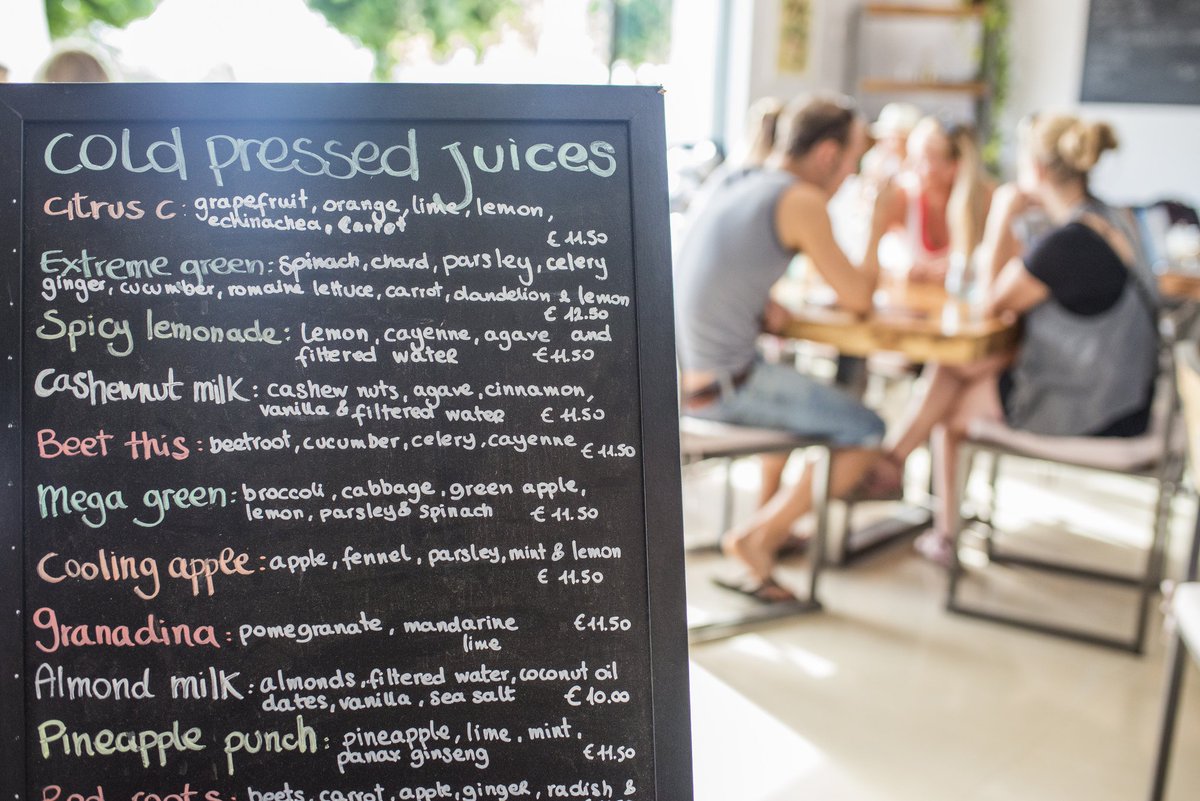 Cold pressed juices
Citrus C: grapefruit, orange, lime, lemon,
echinachea, carrot
€ 11.50
Extreme green: spinach, chard, parsley, celery
ginger, cucumber, romaine lettuce, carrot, dandelion & lemon
€ 12.50
Spicy lemonade: lemon, cayenne, agave and
filtered water €11.50
Cashewnut milk: cashew nuts, agave, cinnamon,
vanilla & filtered water € 11.50
Beet this: beetroot, cucumber, celery, cayenne €11.50
Mega green: broccoli, cabbage, green apple,
lemon, parsley & spinach € 11.50
Cooling apple: apple, fennel, parsley, mint & lemon
€ 11.50
granadina: pomegranate, mandarine €11.50
lime
Almond milk: almonds, filtered water, coconut oil
dates, vanilla, sea salt € 10.00
Pineapple punch: pineapple, lime, mint,
panax ginseng €11.50
Red roots: beets, carrot, apple, ginger, radish &